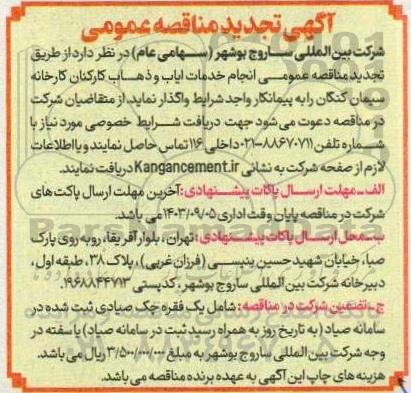 آگهی تجدید مناقصه عمومی
شرکت بین‌المللی ساروج بوشهر (سهامی عام) در نظر دارد از طریق
تجدید مناقصه عمومی انجام خدمات ایاب و ذهاب کارکنان کارخانه
سیمان کنگان را به پیمانکار واجد شرایط واگذار نماید. از متقاضیان شرکت
در مناقصه دعوت می شود جهت دریافت شرایط خصوصی مورد نیاز با
شماره تلفن ۸۸۶۷۰۷۱۱-۰۲۱ داخلی ۱۱۶ تماس حاصل نمایند و یا اطلاعات
لازم از صفحه شرکت به نشانی Kangancement.ir دریافت نمایند.
الف-مهلت ارسال پاکات پیشنهادی: آخرین مهلت ارسال پاکت های
شرکت در مناقصه پایان وقت اداری ۱۴۰۳/۰۹/۰۵ می باشد.
ب-محل ارسال پاکات پیشنهادی: تهران، بلوار آفریقا، روبه روی پارک
صبا، خیابان شهید حسین ینیسی (فرزان غربی)، پلاک ۳۸، طبقه اول،
دبیرخانه شرکت بین المللی ساروج بوشهر، کدپستی ۱۹۶۸۸۴۴۷۱۳.
ج-تضمین شرکت در مناقصه: شامل یک فقره چک صیادی ثبت شده در
سامانه صیاد (به تاریخ روز به همراه رسید ثبت در سامانه صیاد) یا سفته در
وجه شرکت بین المللی ساروج بوشهر به مبلغ ۳/۵۰۰/۰۰۰/۰۰۰ ریال می باشد.
هزینه های چاپ این آگهی به عهده برنده مناقصه می باشد.